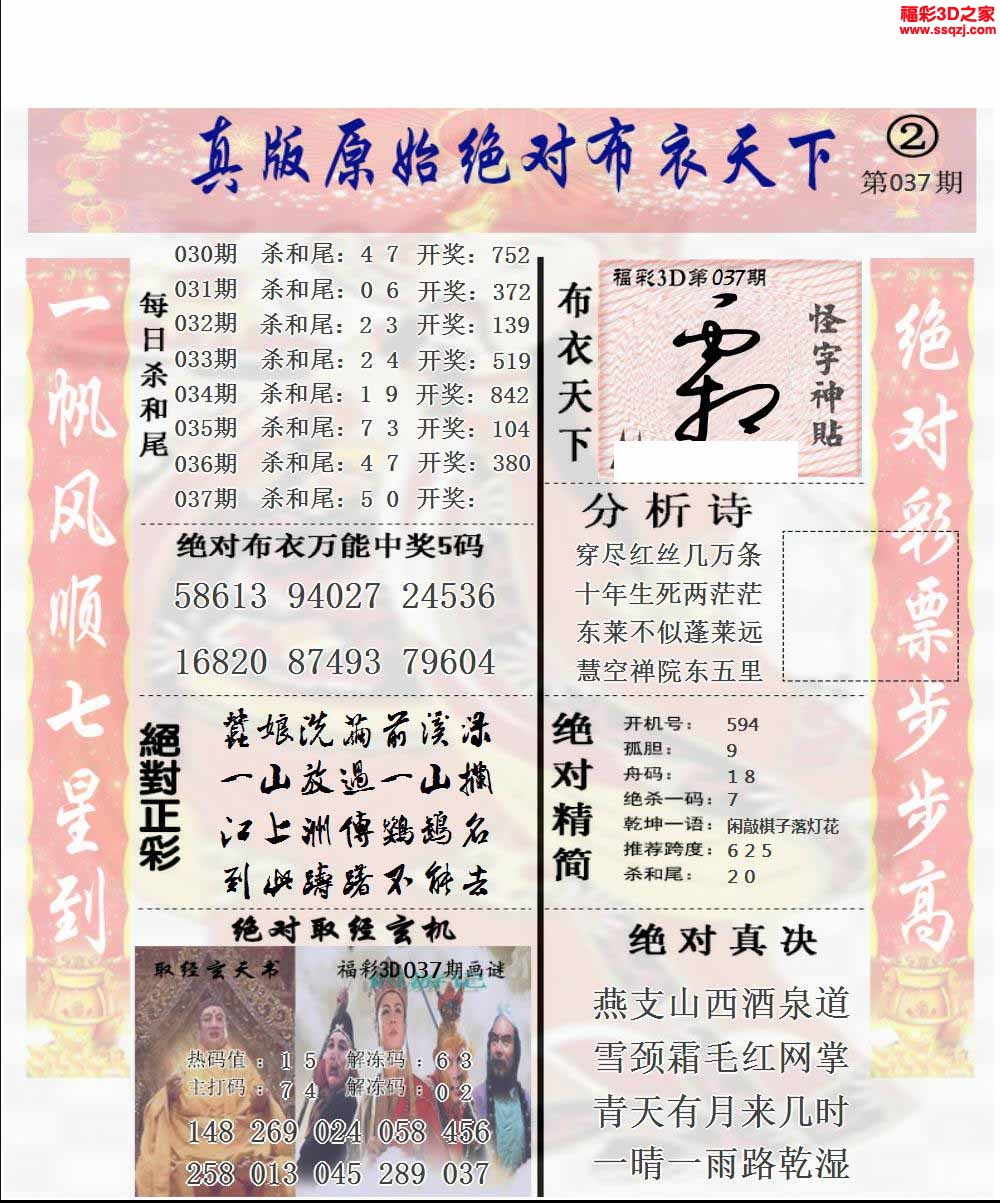 福彩3D之家
www.ssqzj.com
真版原始绝对布衣天下
②
第037期
一帆风顺七星到
绝对彩票步步高
每日杀和尾
030期 杀和尾：4 7 开奖：752
031期 杀和尾：0 6 开奖：372
032期 杀和尾：2 3 开奖：139
033期 杀和尾：2 4 开奖：519
034期 杀和尾：1 9 开奖：842
035期 杀和尾：7 3 开奖：104
036期 杀和尾：4 7 开奖：380
037期 杀和尾：5 0 开奖：
绝对布衣万能中奖5码
58613 94027 24536
16820 87493 79604
絕對正彩
蠶娘洗繭前溪渌
一山放過一山攔
江上洲傳鸚鵡名
到此躊躇不能去
绝对取经玄机
取经玄天书
福彩3D037期画谜
热码值：1 5 解冻码：6 3
主打码：7 4 解冻码：0 2
148 269 024 058 456
258 013 045 289 037
布衣天下
福彩3D第037期
怪字神貼
分析诗
穿尽红丝几万条
十年生死两茫茫
东莱不似蓬莱远
慧空禅院东五里
绝对精简
开机号： 594
孤胆： 9
舟码： 1 8
绝杀一码：7
乾坤一语：闲敲棋子落灯花
推荐跨度：6 2 5
杀和尾： 2 0
绝对真决
燕支山西酒泉道
雪颈霜毛红网掌
青天有月来几时
一晴一雨路乾湿